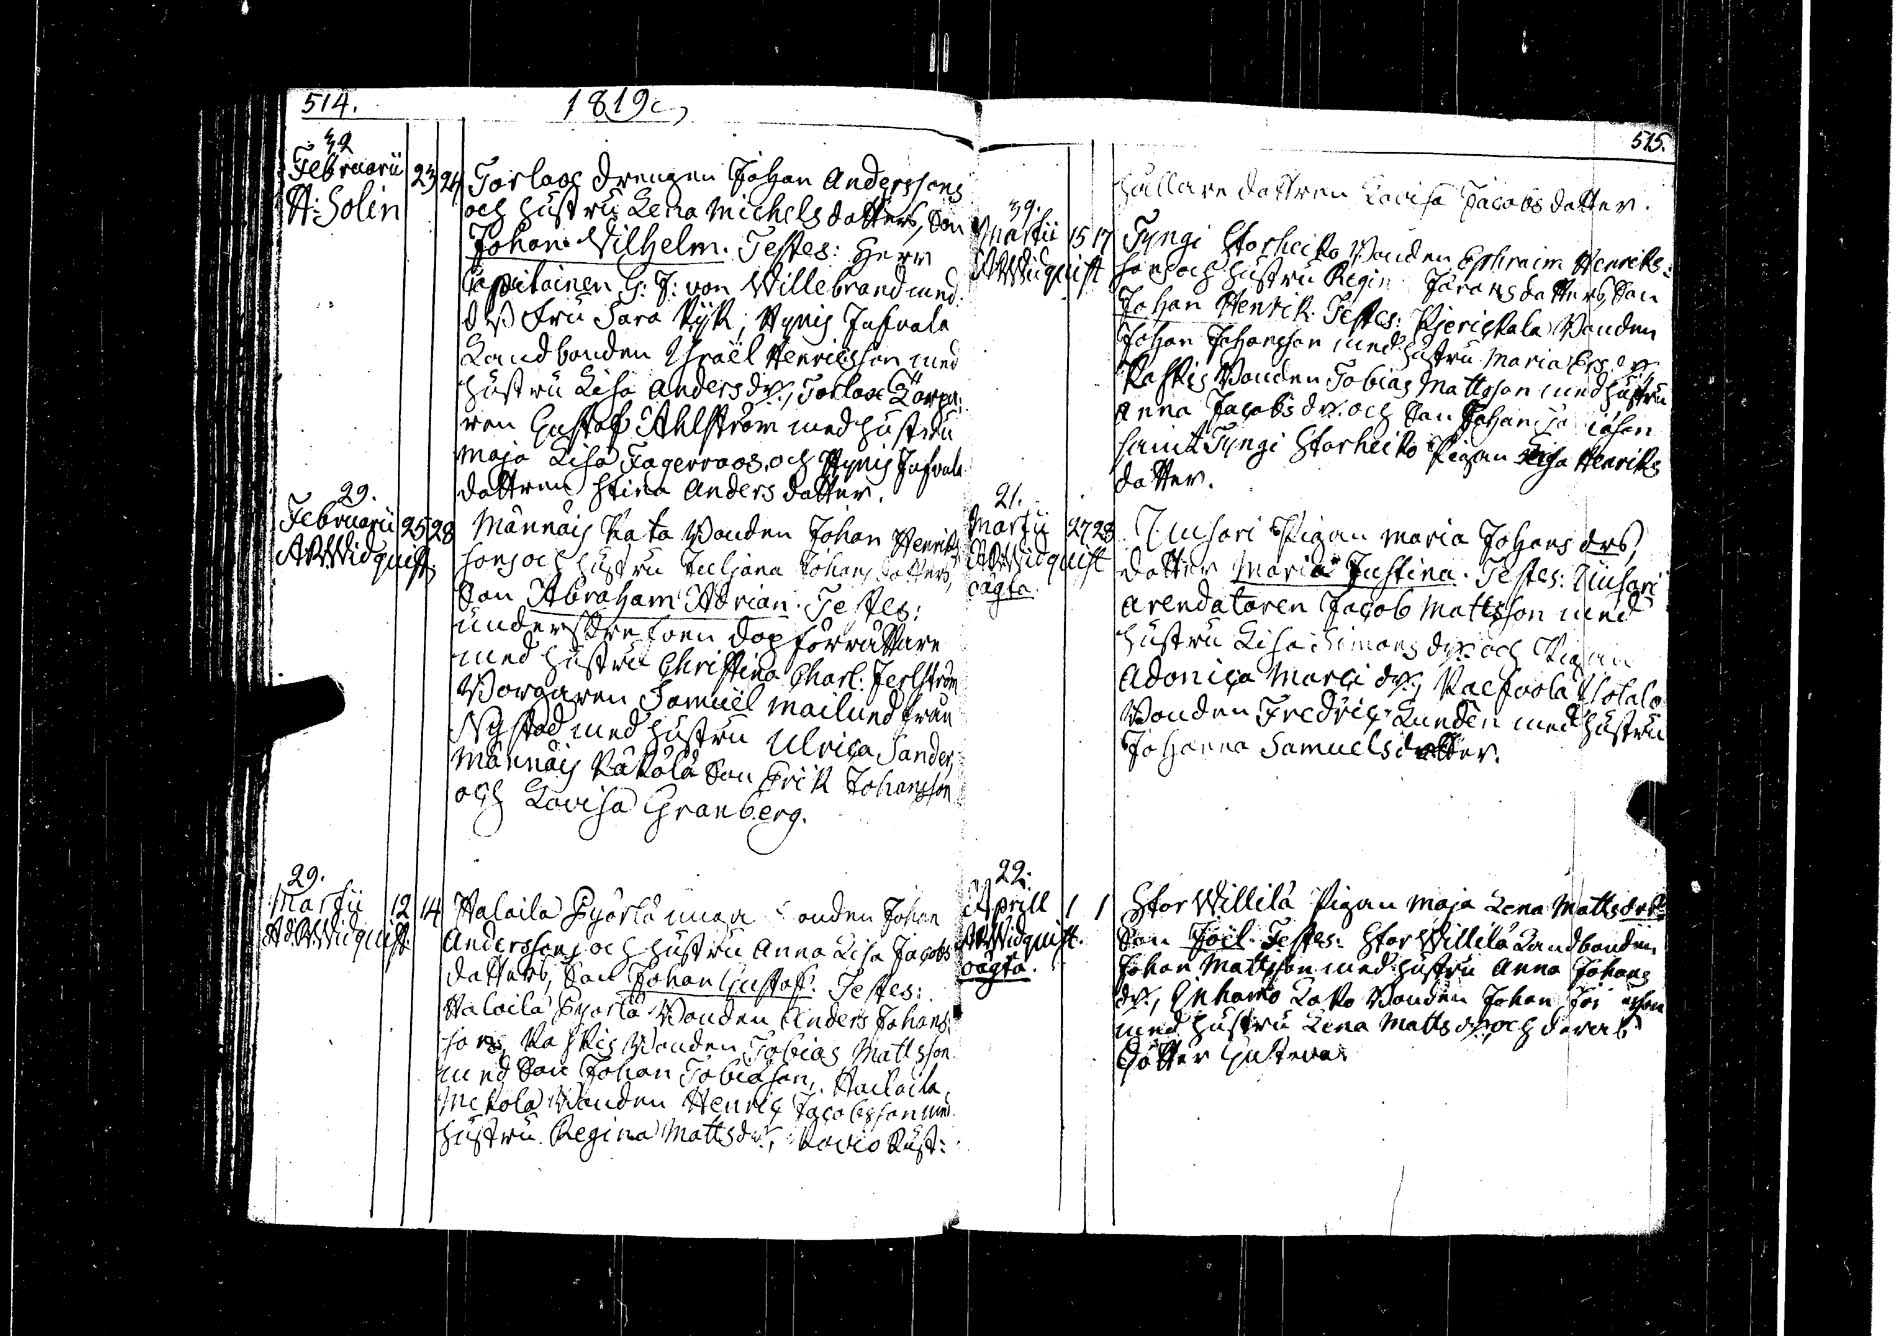 514.
1819
32
Februarii 23 24
A: Solin
Torlaox Drengen Johan Anderssons
och hustru Lena Michelsdotters, Son
Johan Wilhelm. Testes: Herr
Capitainen G: J: von Willebrand med
dess Fru Sara Pijk, Hynis Jafvala
Landbonden Israël Henricsson med
hustru Lisa Andersdr, Torlax
ren Gustaf Ahlström med hustru
Maja Lisa Fagerroos, och Hynis Jafvala
dottren Stina Andersdotter.
29.
Februarii 25 28
A Widquist.
Männäis Pata Bonden Johan Henrik
sons och hustru Juliana Johansdotters,
Son Abraham Adrian. Testes:
underskrefven Dopförrättare
med hustru Christina Charl: Jerlström
Borgaren Samuël Mailund från
Nystad med hustru Ulrica Sander,
Männäis Käkölä Son Erik Johansson
och Lovisa Granberg.
29.
Martii 12 14
Ad Widquist.
Halaila Pyörlä unga Bonden Johan
Anderssons och hustru Anna Lisa Jacobs
dotters, Son Johan Gustaf. Testes:
Halaila Pyörlä Bonden Anders Johans
son, Kaskis Bonden Tobias Mattsson
med Son Johan Tobiasson, Hailaila
Mickola Bonden Henric Jacobsson med
hustru Regina Mattsdr, Ravio Rust:
515.
hållare dottren Lovisa Jacobsdotter.
39.
Martii 15 17
A Widquist
Tyngi Storheiko Bonden Ephraim Henriks:
sons och hustru Regin Göransdotters Son
Johan Henrik. Testes: Pjeriskala Bonden
Johan Johansson med hustru Maria Ers dr,
Kaskis Bonden Tobias Mattsson med hustru
Anna Jacobsdr. och Son Johan
samt Tyngi Storheiko Pigan Lisa Henriks
dotter.
21.
Martii 27 28
A Widquist
oägta.
Pigan Maria Johansdrs,
dotter Maria Justina. Testes:
Arendatoren Jacob Mattsson med
hustru Lisa Simonsdr. och Pigan
Adonica Marci dr,
Bonden Fredric Lunden med hustru
Johanna Samuelsdotter.
22.
Aprill 1 1
A Widquist.
oägta.
Stor Willilä Pigan Maja Lena Mattsdrs
Son Joël. Testes: Stor Willilä Landbonden
Johan Mattsson med hustru Anna Johans
dr, Lako Bonden Johan
med hustru Lena Mattsdr. och deras
dotter Gustava.